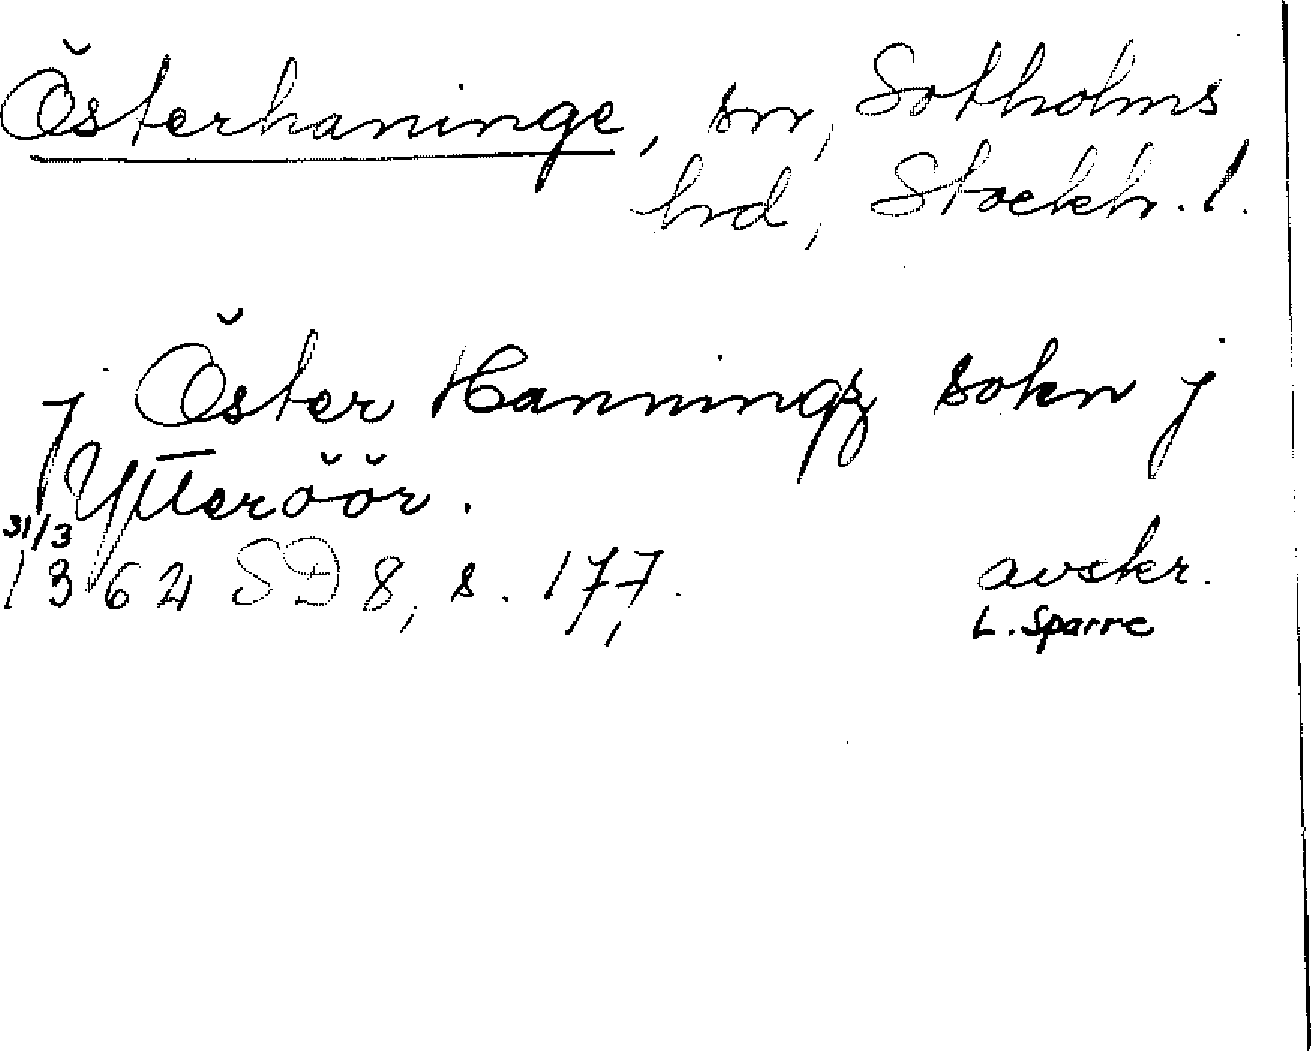 Österhaninge, sn, Sotholms
hd, Stockh. l.
j Öster Hanningz sokn j
Ytteröör.
31/3
1364 SD 8, s. 177. avskr.
L. Sparre